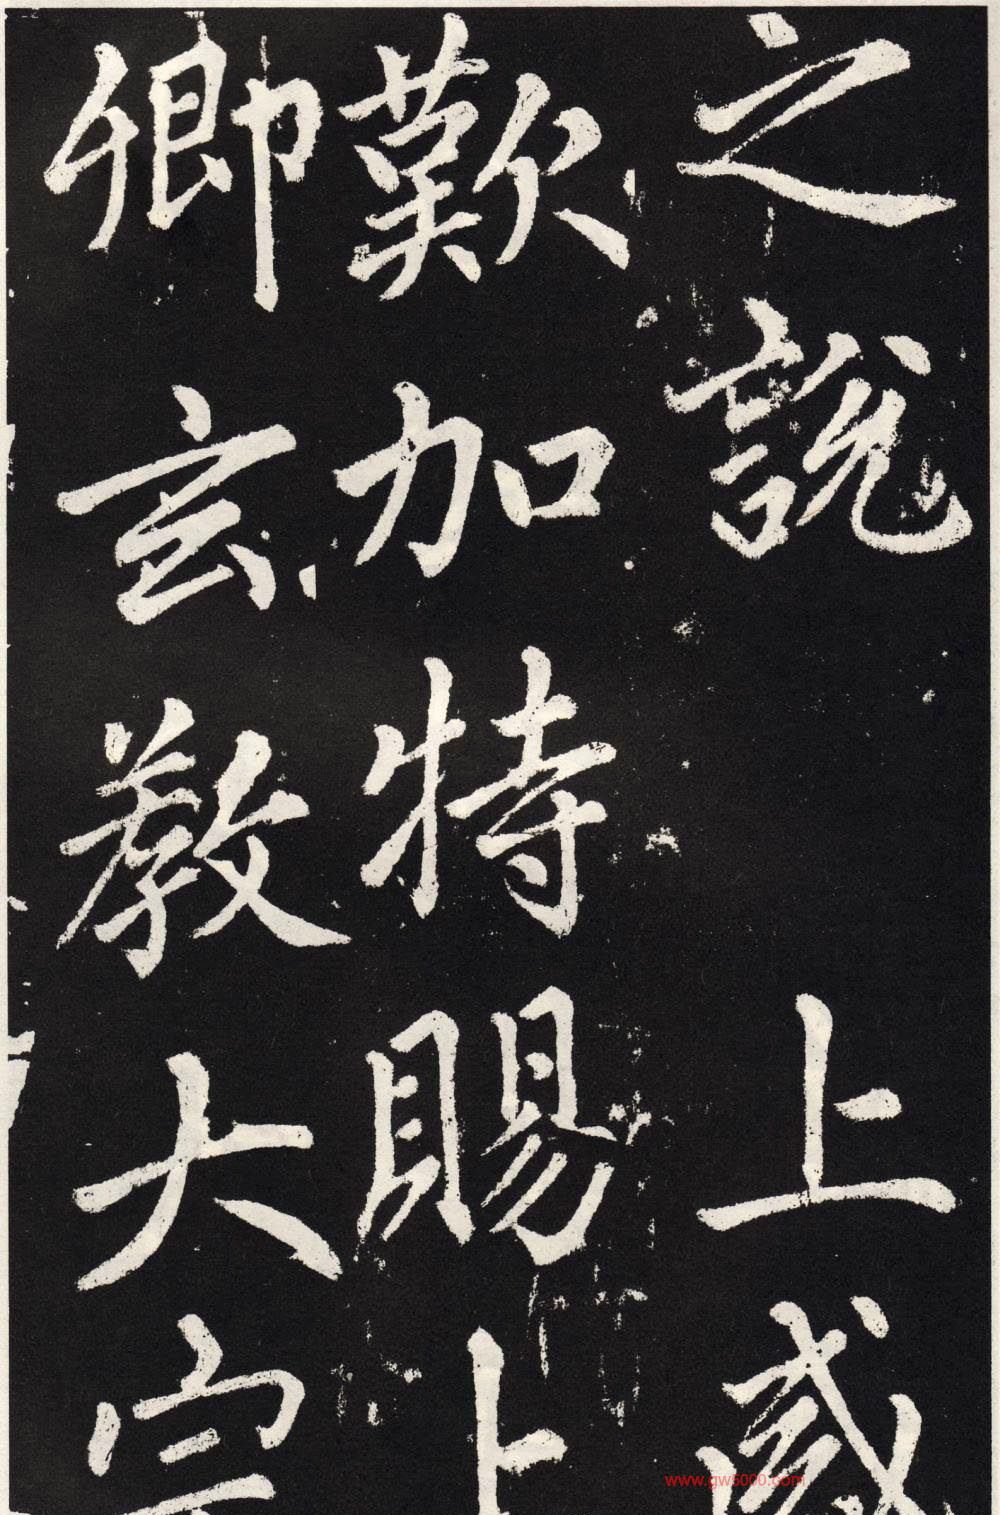 之說 上感
歎加特賜上
卿玄教大宗
www.gw5000.com